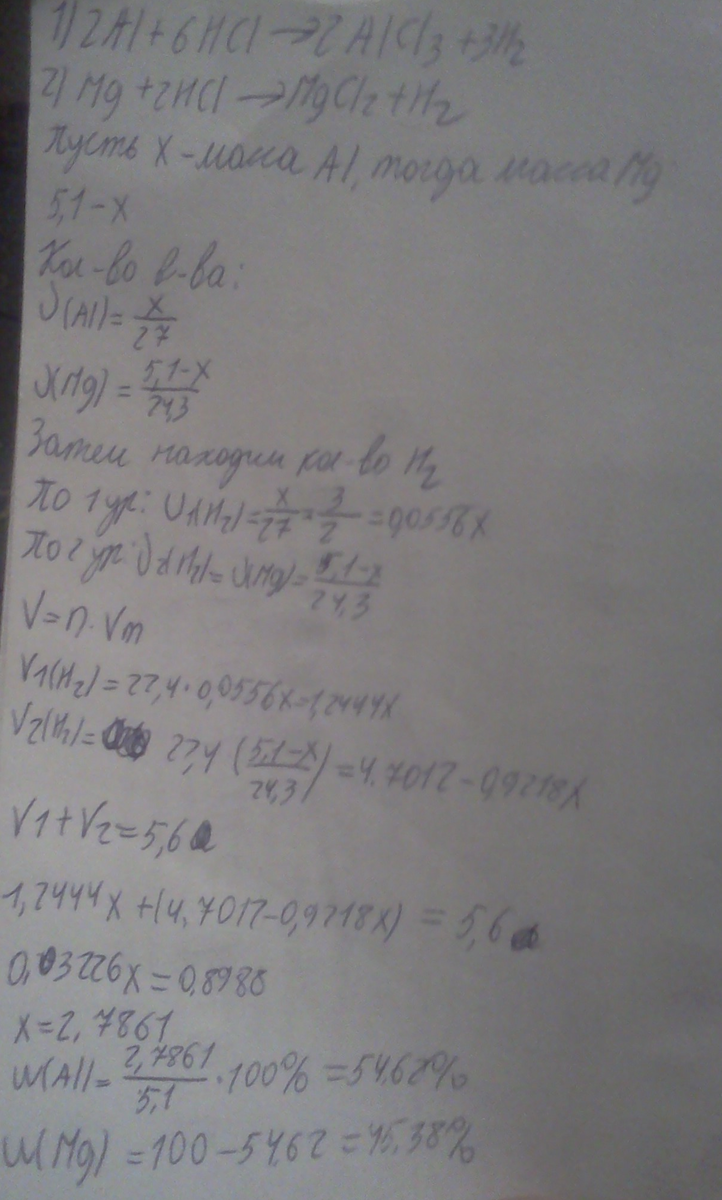 1) 2Al + 6HCl → 2AlCl3 + 3H2
2) Mg + 2HCl → MgCl2 + H2
Пусть X - масса Al, тогда масса Mg
5,1 - X
Кол-во в-ва:
ν(Al) = X/27
ν(Mg) = 5,1-X/24,3
Затем находим кол-во H2
По 1 ур: ν1(H2) = X/27 * 3/2 = 0,0556X
По 2 ур: ν2(H2) = ν(Mg) = 5,1-X/24,3
V = n · Vm
V1(H2) = 22,4 · 0,0556X = 1,2444X
V2(H2) = 22,4 (5,1-X/24,3) = 4.7012 - 0,9218X
V1 + V2 = 5,6
1,2444X + (4,7012 - 0,9218X) = 5,6
0,03226X = 0,8988
X = 2,7861
W(Al) = 2,7861/5,1 · 100% = 54,62%
W(Mg) = 100 - 54,62 = 45,38%